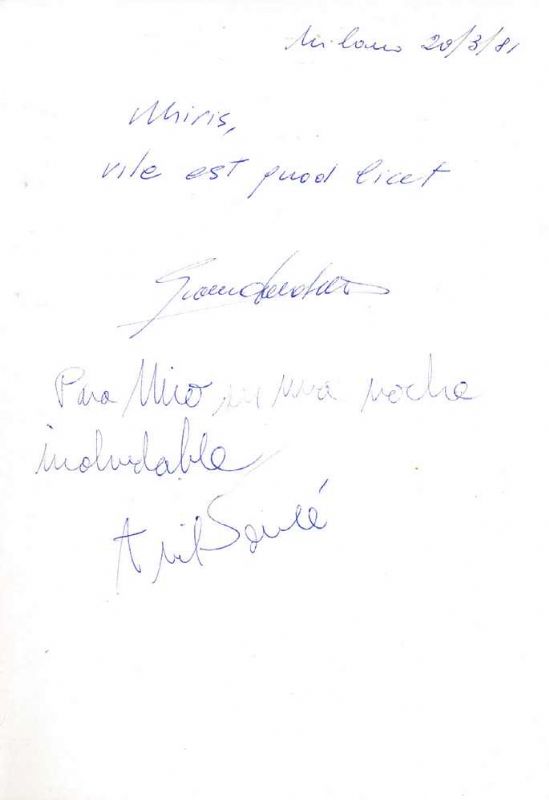 Milano 20/3/81
Miris,
vile est quod licet
Para Miro en una noche
inolvidable